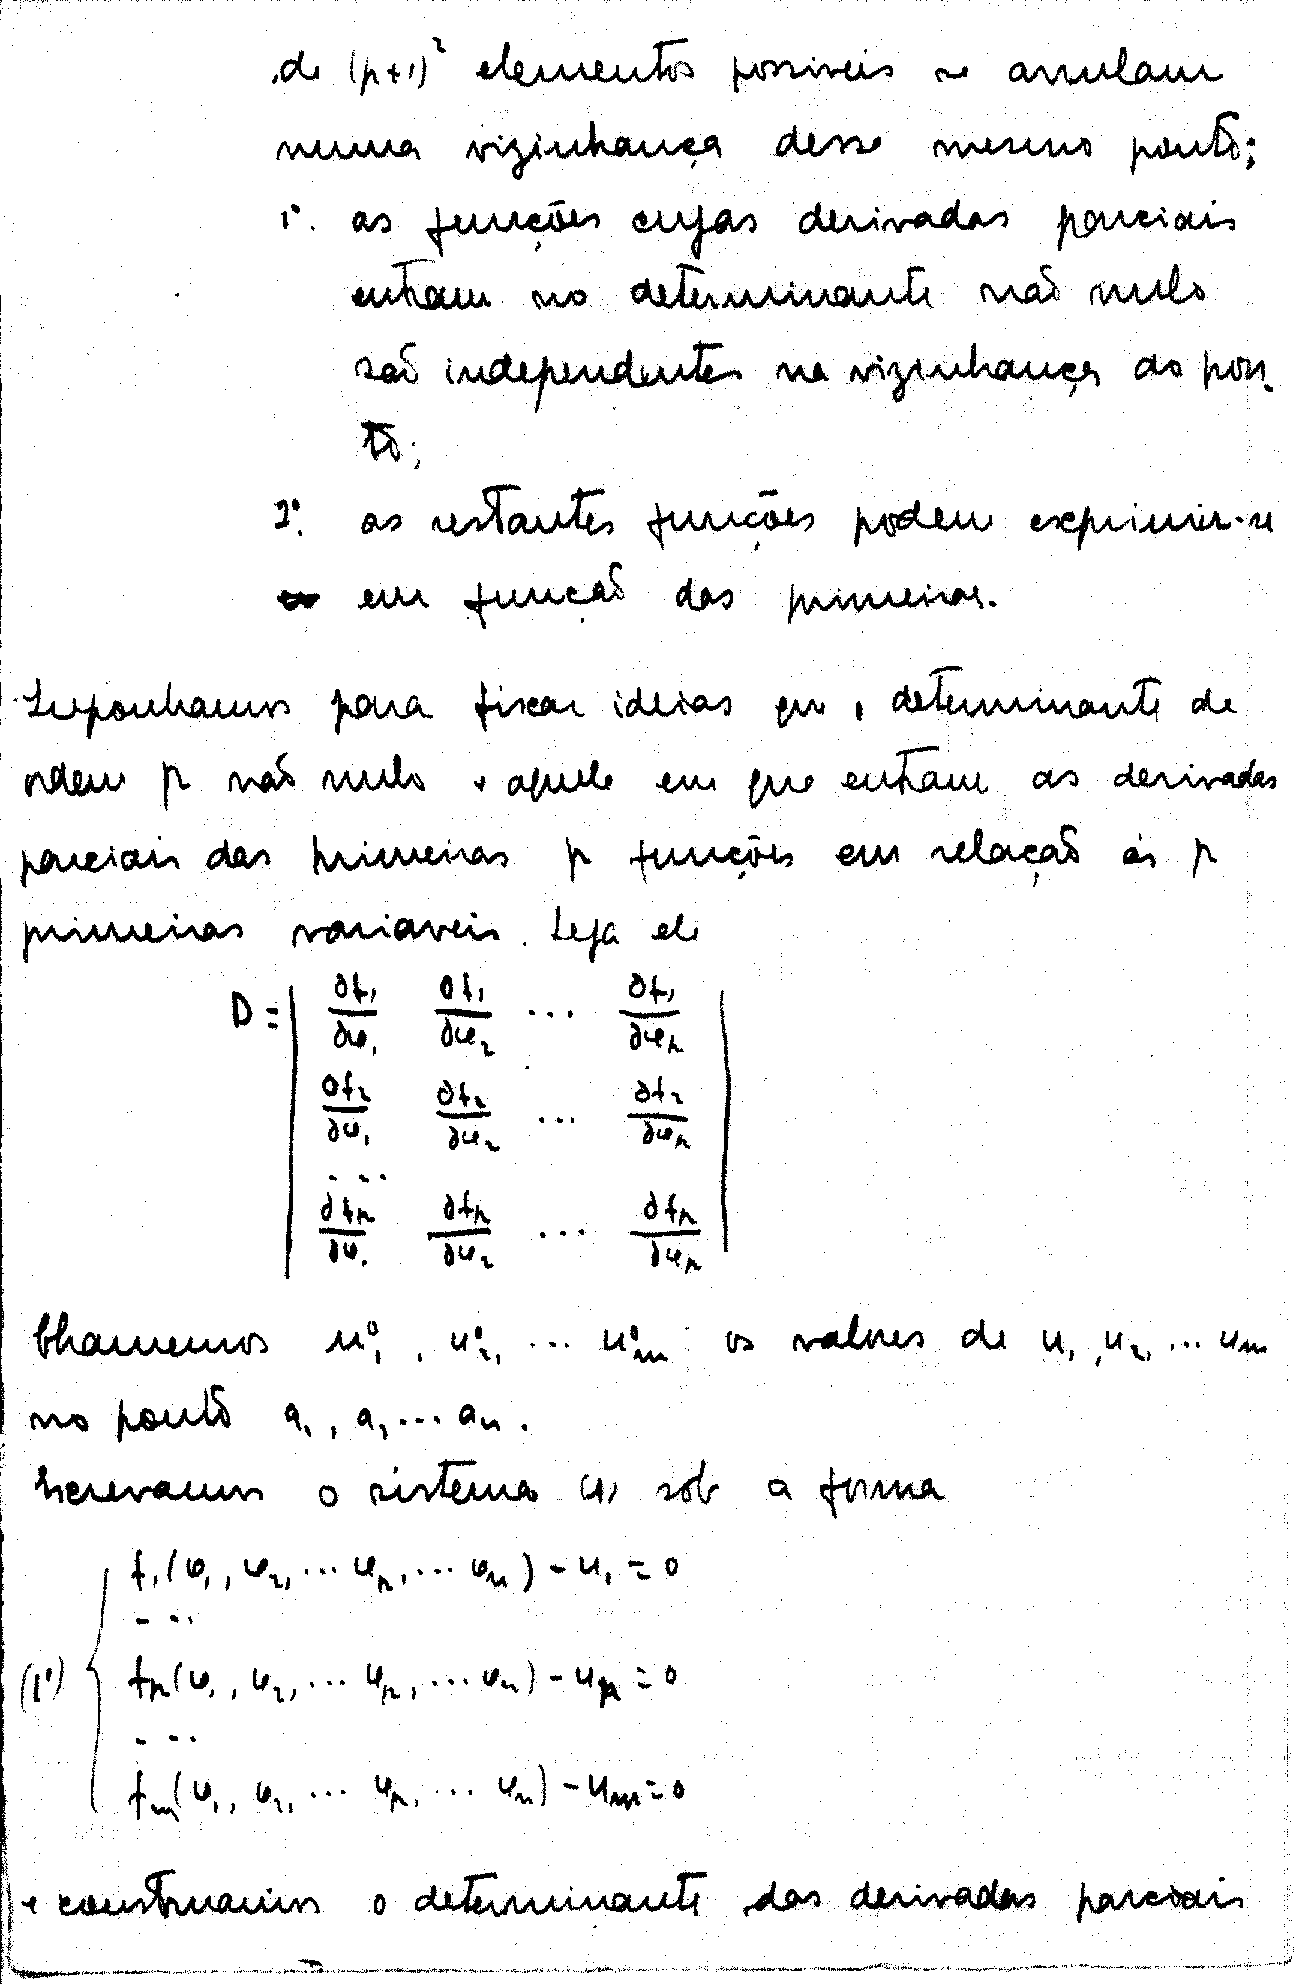 de (p+1)² elementos possiveis se anulam
numa vizinhança desse mesmo ponto;
1º. as funções cujas derivadas parciais
entram no determinante não nulo
são independentes na vizinhança do pon-
to;
2º. as restantes funções podem exprimir-se
em função das primeiras.
Suponhamos para fixar ideias que o determinante de
ordem p não nulo é aquele em que entram as derivadas
parciais das primeiras p funções em relação às p
primeiras variaveis. Seja ele
D = | ∂f₁/∂x₁ ∂f₁/∂x₂ ... ∂f₁/∂xₚ |
| ∂f₂/∂x₁ ∂f₂/∂x₂ ... ∂f₂/∂xₚ |
....
| ∂fₚ/∂x₁ ∂fₚ/∂x₂ ... ∂fₚ/∂xₚ |
Chamemos u₁⁰, u₂⁰, ... uₘ⁰ os valores de u₁, u₂, ... uₘ
no ponto a₁, a₁ ... aₙ.
Escrevamos o sistema (1) sob a forma
f₁(x₁, x₂, ... xₚ, ... xₙ) - u₁ = 0
....
(1') fₚ(x₁, x₂, ... xₚ, ... xₙ) - uₚ = 0
....
fₘ(x₁, x₂, ... xₚ, ... xₙ) - uₘ = 0
e construamos o determinante das derivadas parciais